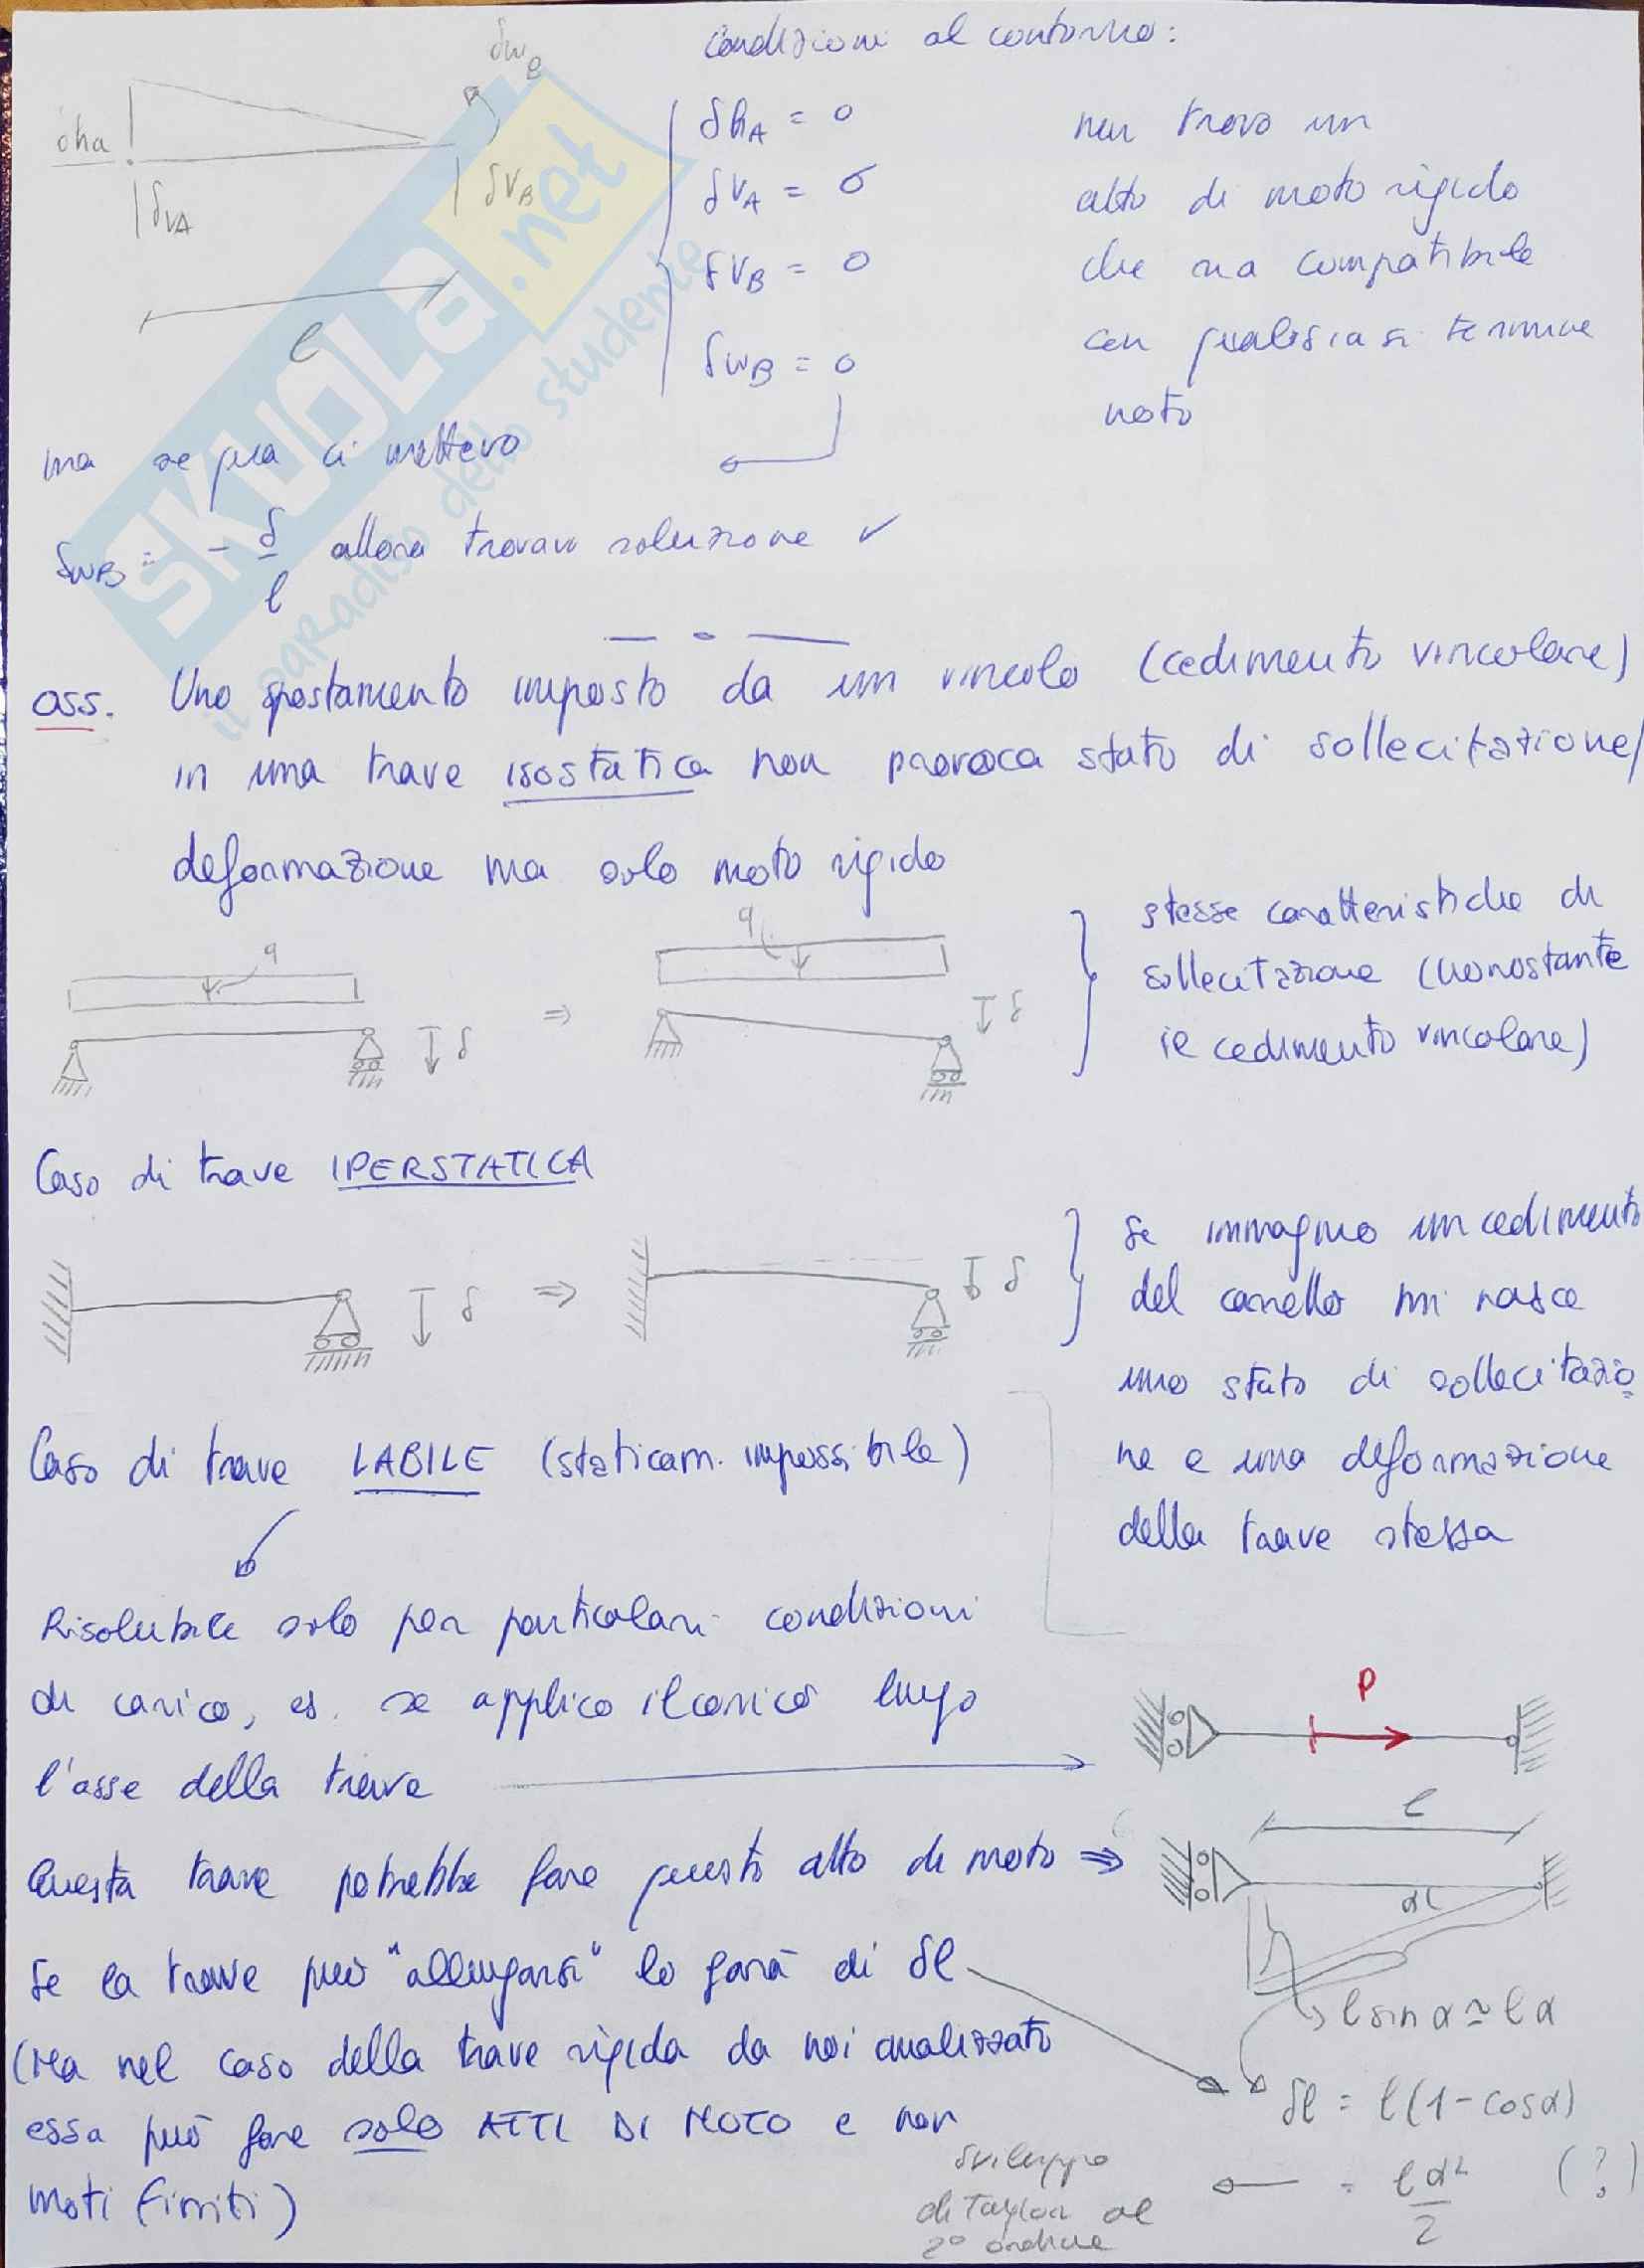 Condizioni al contorno:
δha
δvA
δwB
δvB
l
δhA = 0
δvA = σ
δvB = 0
δwB = 0
non trovo un
atto di moto rigido
che sia compatibile
con qualsiasi termine
noto
ma se qua ci mettevo
δwB = - δ/l allora trovavo soluzione ✓
SKUOLA.net
il paradiso dello studente
oss. Uno spostamento imposto da un vincolo (cedimento vincolare)
in una trave isostatica non provoca stato di sollecitazione/
deformazione ma solo moto rigido
q
δ
⇒
q
δ
stesse caratteristiche di
sollecitazione (nonostante
il cedimento vincolare)
Caso di trave IPERSTATICA
δ
⇒
δ
se immagino un cedimento
del carrello mi nasce
uno stato di sollecitazio
ne e una deformazione
della trave stessa
Caso di trave LABILE (staticam. impossibile)
Risolubile solo per particolari condizioni
di carico, es. se applico il carico lungo
l'asse della trave
P
Questa trave potrebbe fare questo atto di moto ⇒
l
Se la trave può "allungarsi" lo farà di δl
(Ma nel caso della trave rigida da noi analizzato
essa può fare solo ATTI DI MOTO e non
moti finiti)
l sin α ≃ l α
δl = l(1-cosα)
= lα²/2 (?)
sviluppo
di Taylor al
2° ordine